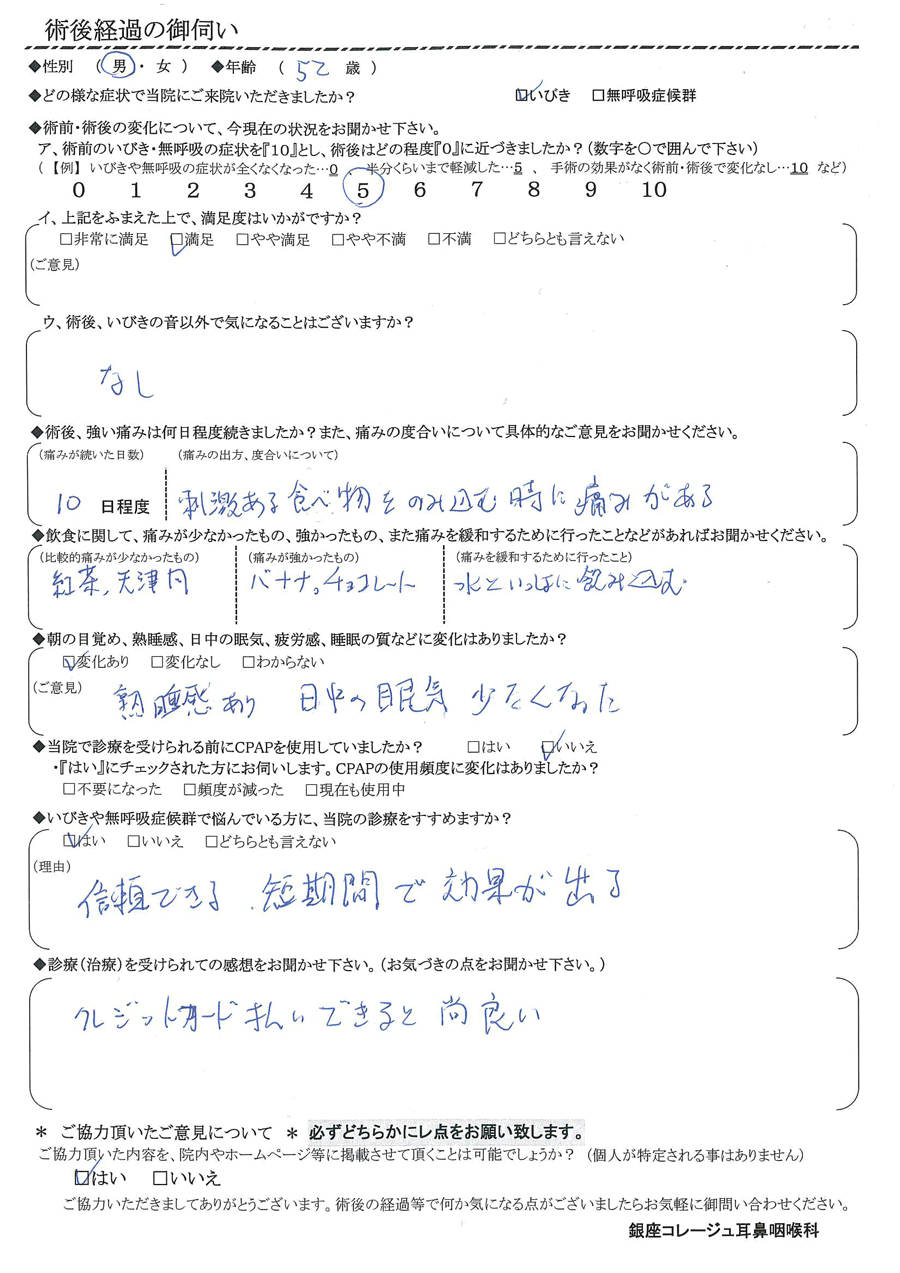 術後経過の御伺い
◆性別 （ 男 ・ 女 ） ◆年齢 （ 52 歳 ）
◆どの様な症状で当院にご来院いただきましたか？ ☑いびき □無呼吸症候群
◆術前・術後の変化について、今現在の状況をお聞かせ下さい。
ア、術前のいびき・無呼吸の症状を『10』とし、術後はどの程度『0』に近づきましたか？（数字を〇で囲んで下さい）
（【例】いびきや無呼吸の症状が全くなくなった…0 、 半分くらいまで軽減した…5 、 手術の効果がなく術前・術後で変化なし…10 など）
0 1 2 3 4 5 6 7 8 9 10
イ、上記をふまえた上で、満足度はいかがですか？
□非常に満足 ☑満足 □やや満足 □やや不満 □不満 □どちらとも言えない
（ご意見）
ウ、術後、いびきの音以外で気になることはございますか？
なし
◆術後、強い痛みは何日程度続きましたか？また、痛みの度合いについて具体的なご意見をお聞かせください。
（痛みが続いた日数） （痛みの出方、度合いについて）
10 日程度 刺激ある食べ物をのみ込む時に痛みがある
◆飲食に関して、痛みが少なかったもの、強かったもの、また痛みを緩和するために行ったことなどがあればお聞かせください。
（比較的痛みが少なかったもの） （痛みが強かったもの） （痛みを緩和するために行ったこと）
紅茶,天津丼 バナナ。チョコレート 水といっしょに飲み込む
◆朝の目覚め、熟睡感、日中の眠気、疲労感、睡眠の質などに変化はありましたか？
☑変化あり □変化なし □わからない
（ご意見）
熟睡感あり 日中の眠気 少なくなった
◆当院で診療を受けられる前にCPAPを使用していましたか？ □はい ☑いいえ
・『はい』にチェックされた方にお伺いします。CPAPの使用頻度に変化はありましたか？
□不要になった □頻度が減った □現在も使用中
◆いびきや無呼吸症候群で悩んでいる方に、当院の診療をすすめますか？
☑はい □いいえ □どちらとも言えない
（理由）
信頼できる．短期間で効果が出る
◆診療（治療）を受けられての感想をお聞かせ下さい。（お気づきの点をお聞かせ下さい。）
クレジットカード払いできると尚良い
＊ ご協力頂いたご意見について ＊ 必ずどちらかにレ点をお願い致します。
ご協力頂いた内容を、院内やホームページ等に掲載させて頂くことは可能でしょうか？（個人が特定される事はありません）
☑はい □いいえ
ご協力いただきましてありがとうございます。術後の経過等で何か気になる点がございましたらお気軽に御問い合わせください。
銀座コレージュ耳鼻咽喉科